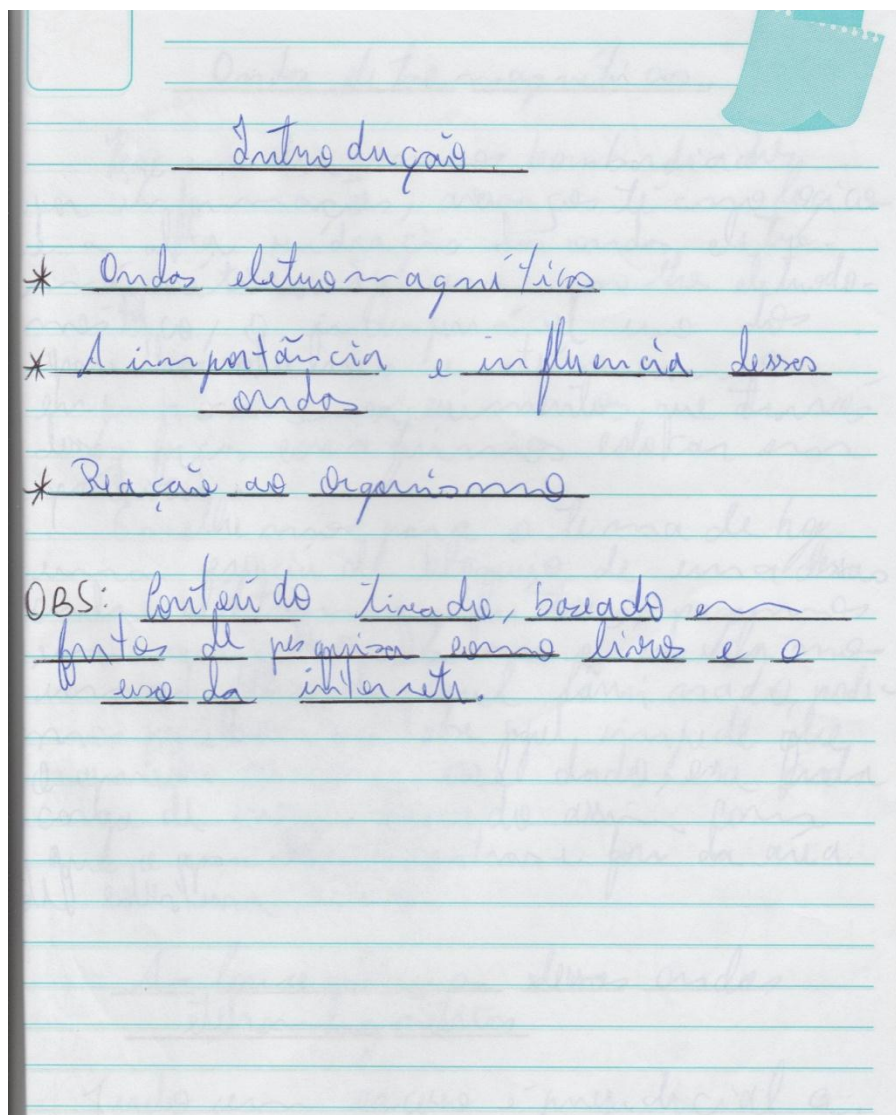 Introdução
* Ondas eletromagnéticas
* A importância e influencia dessas
ondas
* Reação ao organismo
OBS: Conteúdo tirado, baseado em
fontes de pesquisa como livros e o
uso da internet.